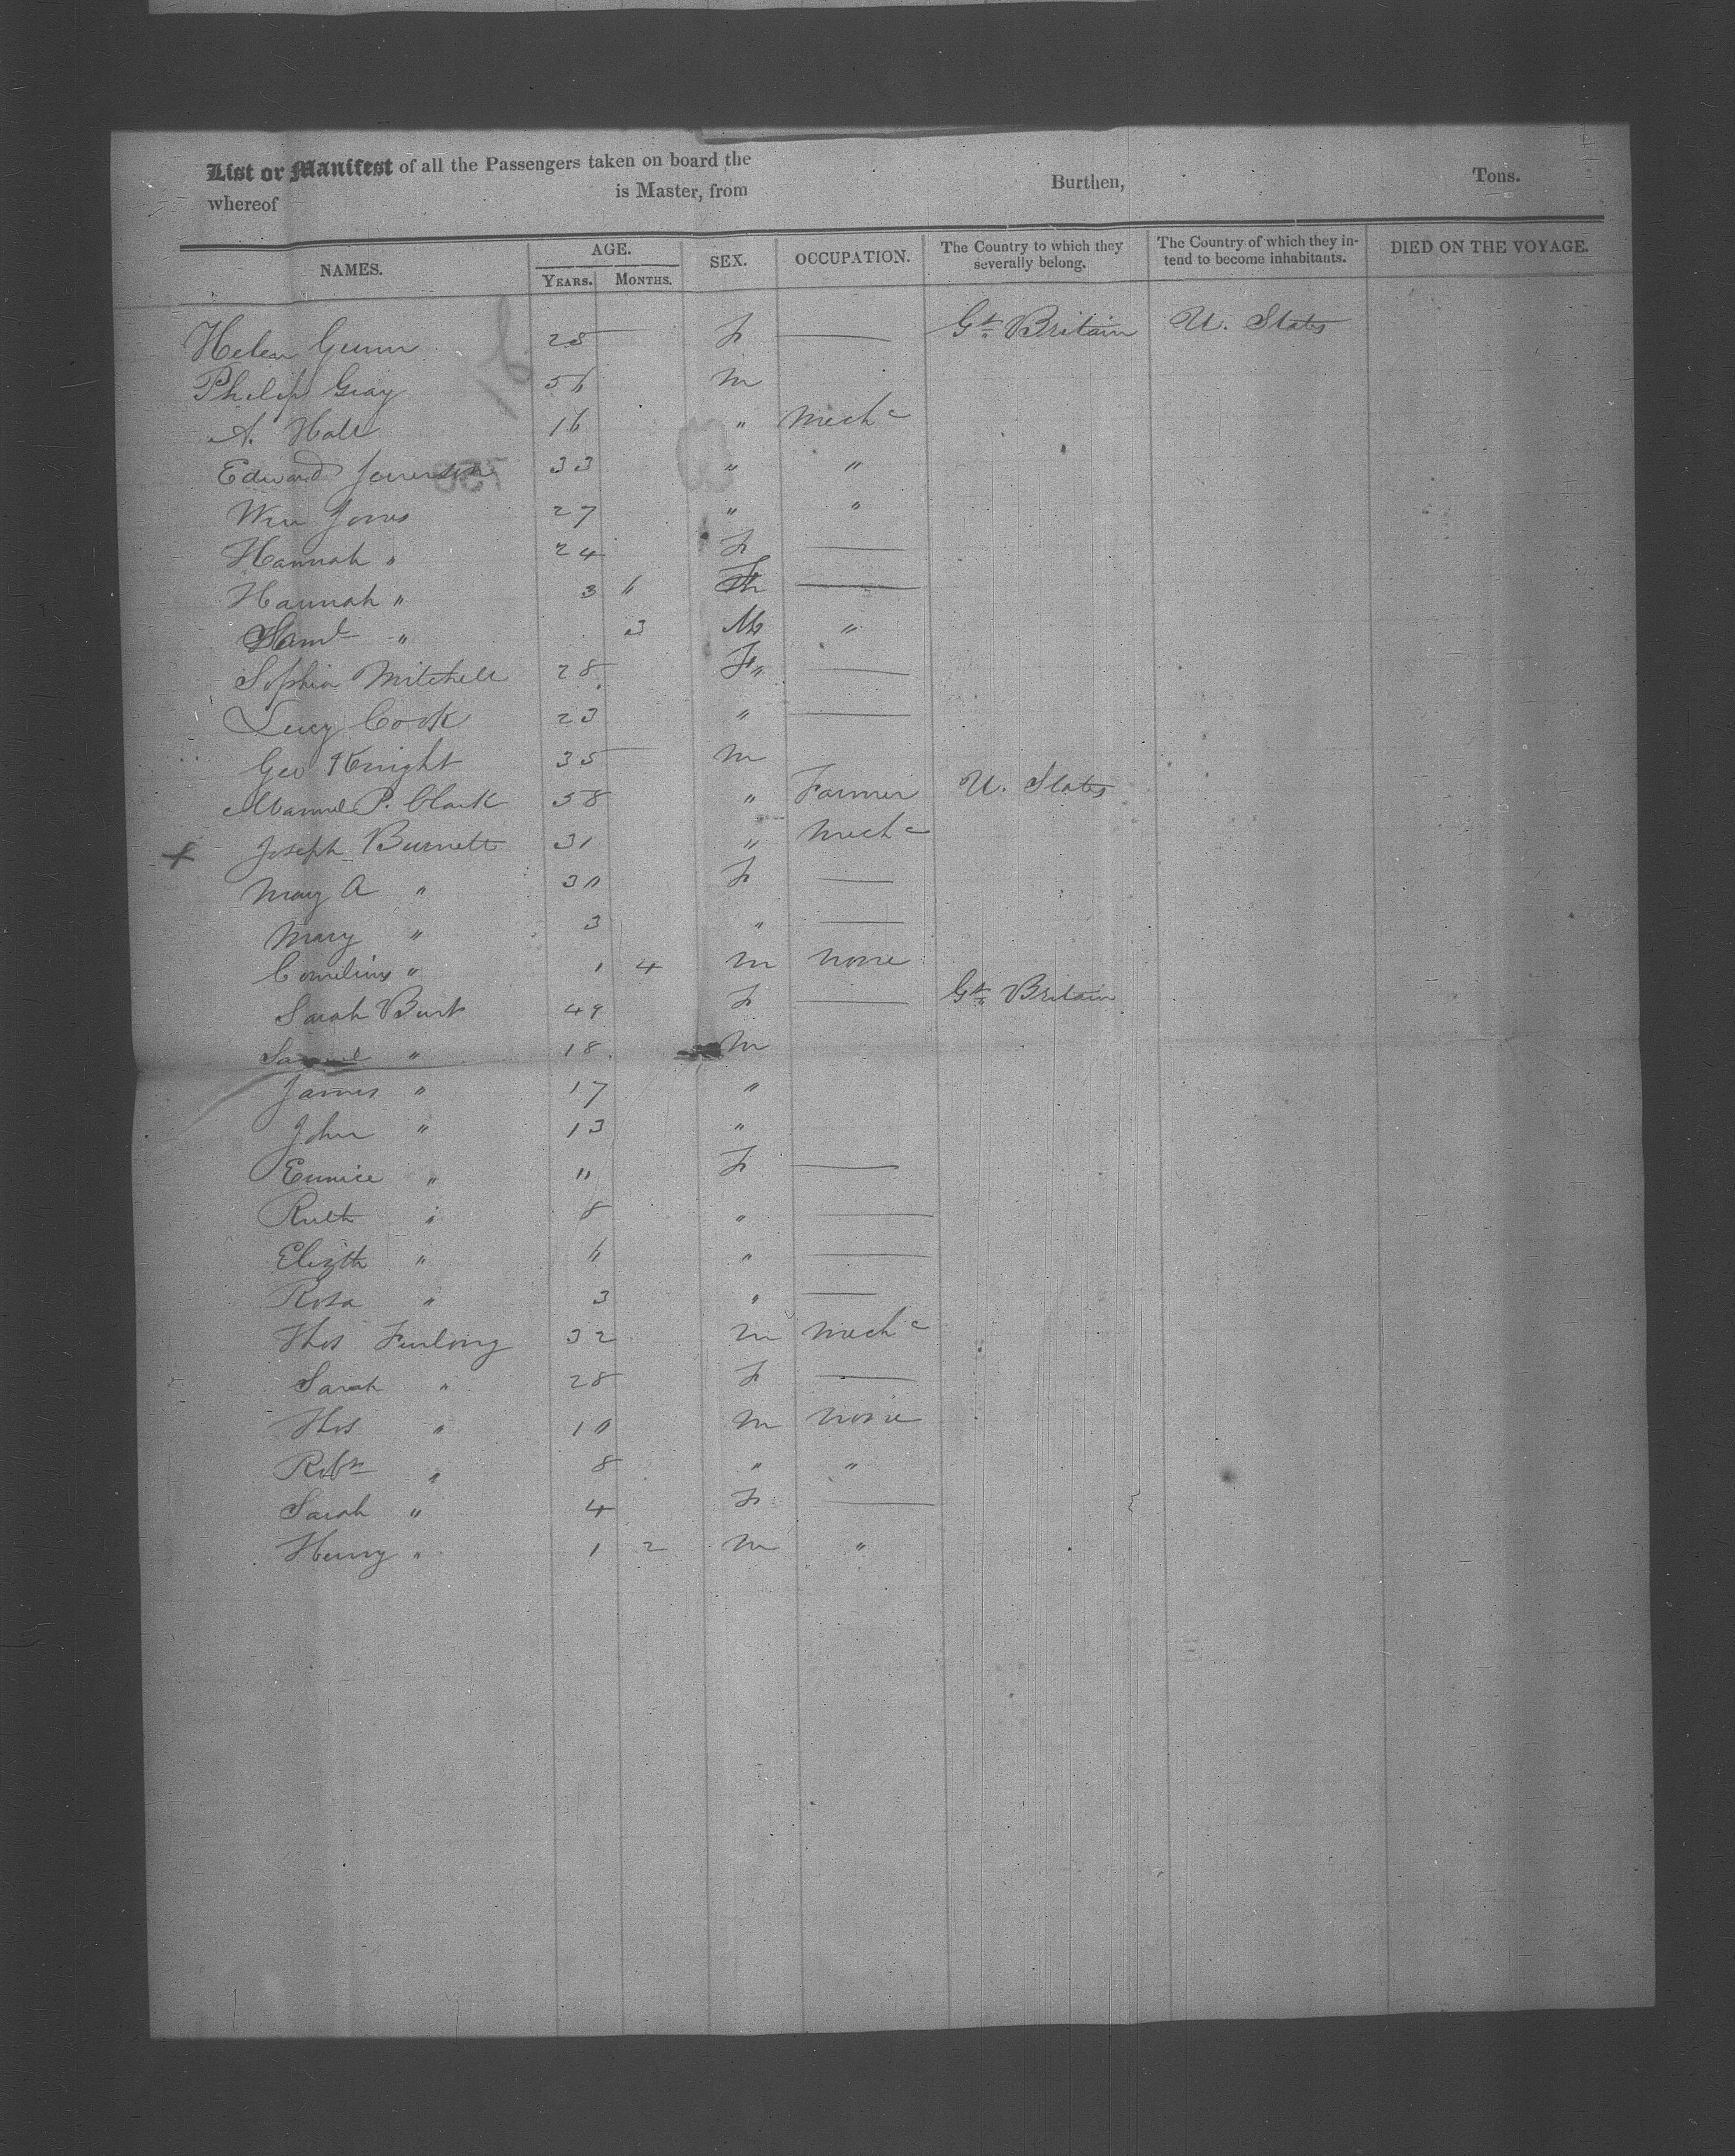 List or Manifest of all the Passengers taken on board the Burthen, Tons.
whereof is Master, from
NAMES. AGE. YEARS. MONTHS. SEX. OCCUPATION. The Country to which they severally belong. The Country of which they intend to become inhabitants. DIED ON THE VOYAGE.
Helen Gunn 28 F — Gt Britain U. States
Philip Gray 56 M
A. Hall 16 " Mechc
Edward 33 " "
Wm Jones 27 " "
Hannah " 24 F —
Hannah " 3 6 F —
Saml " 3 M "
Sophia Mitchell 28 F " —
Lucy Cook 23 " —
Geo Knight 35 M
P. Clark 58 " Farmer U. States
x Joseph Burnett 31 " Mechc
Mary A " 30 F —
Mary " 3 " —
Cornelius " 1 4 M None
Sarah Burt 49 F — Gt Britain
Samuel " 18 M
James " 17 "
John " 13 "
Eunice " 11 F —
Ruth " 8 " —
Elizth " 6 " —
Rosa " 3 " —
Thos Furlong 32 M Mechc
Sarah " 28 F —
Thos " 10 M None
Robt " 8 " "
Sarah " 4 F —
Henry " 1 2 M "